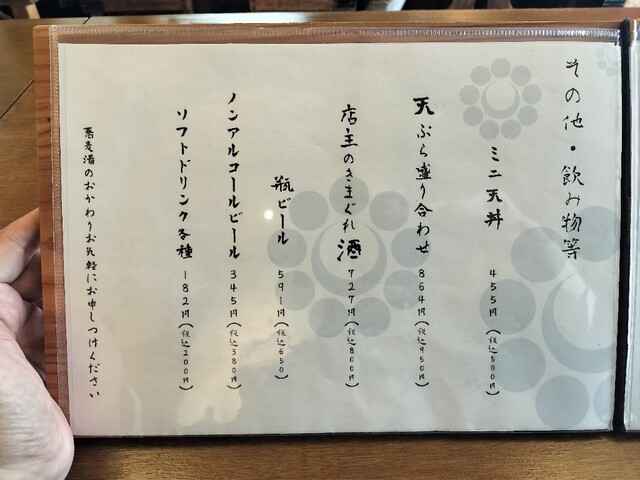 その他・飲み物等
ミニ天丼 455円(税込500円)
天ぷら盛り合わせ 864円(税込950円)
店主のきまぐれ酒 727円(税込800円)
瓶ビール 591円(税込650)
ノンアルコールビール 345円(税込380円)
ソフトドリンク各種 182円(税込200円)
蕎麦湯のおかわりお気軽にお申しつけください